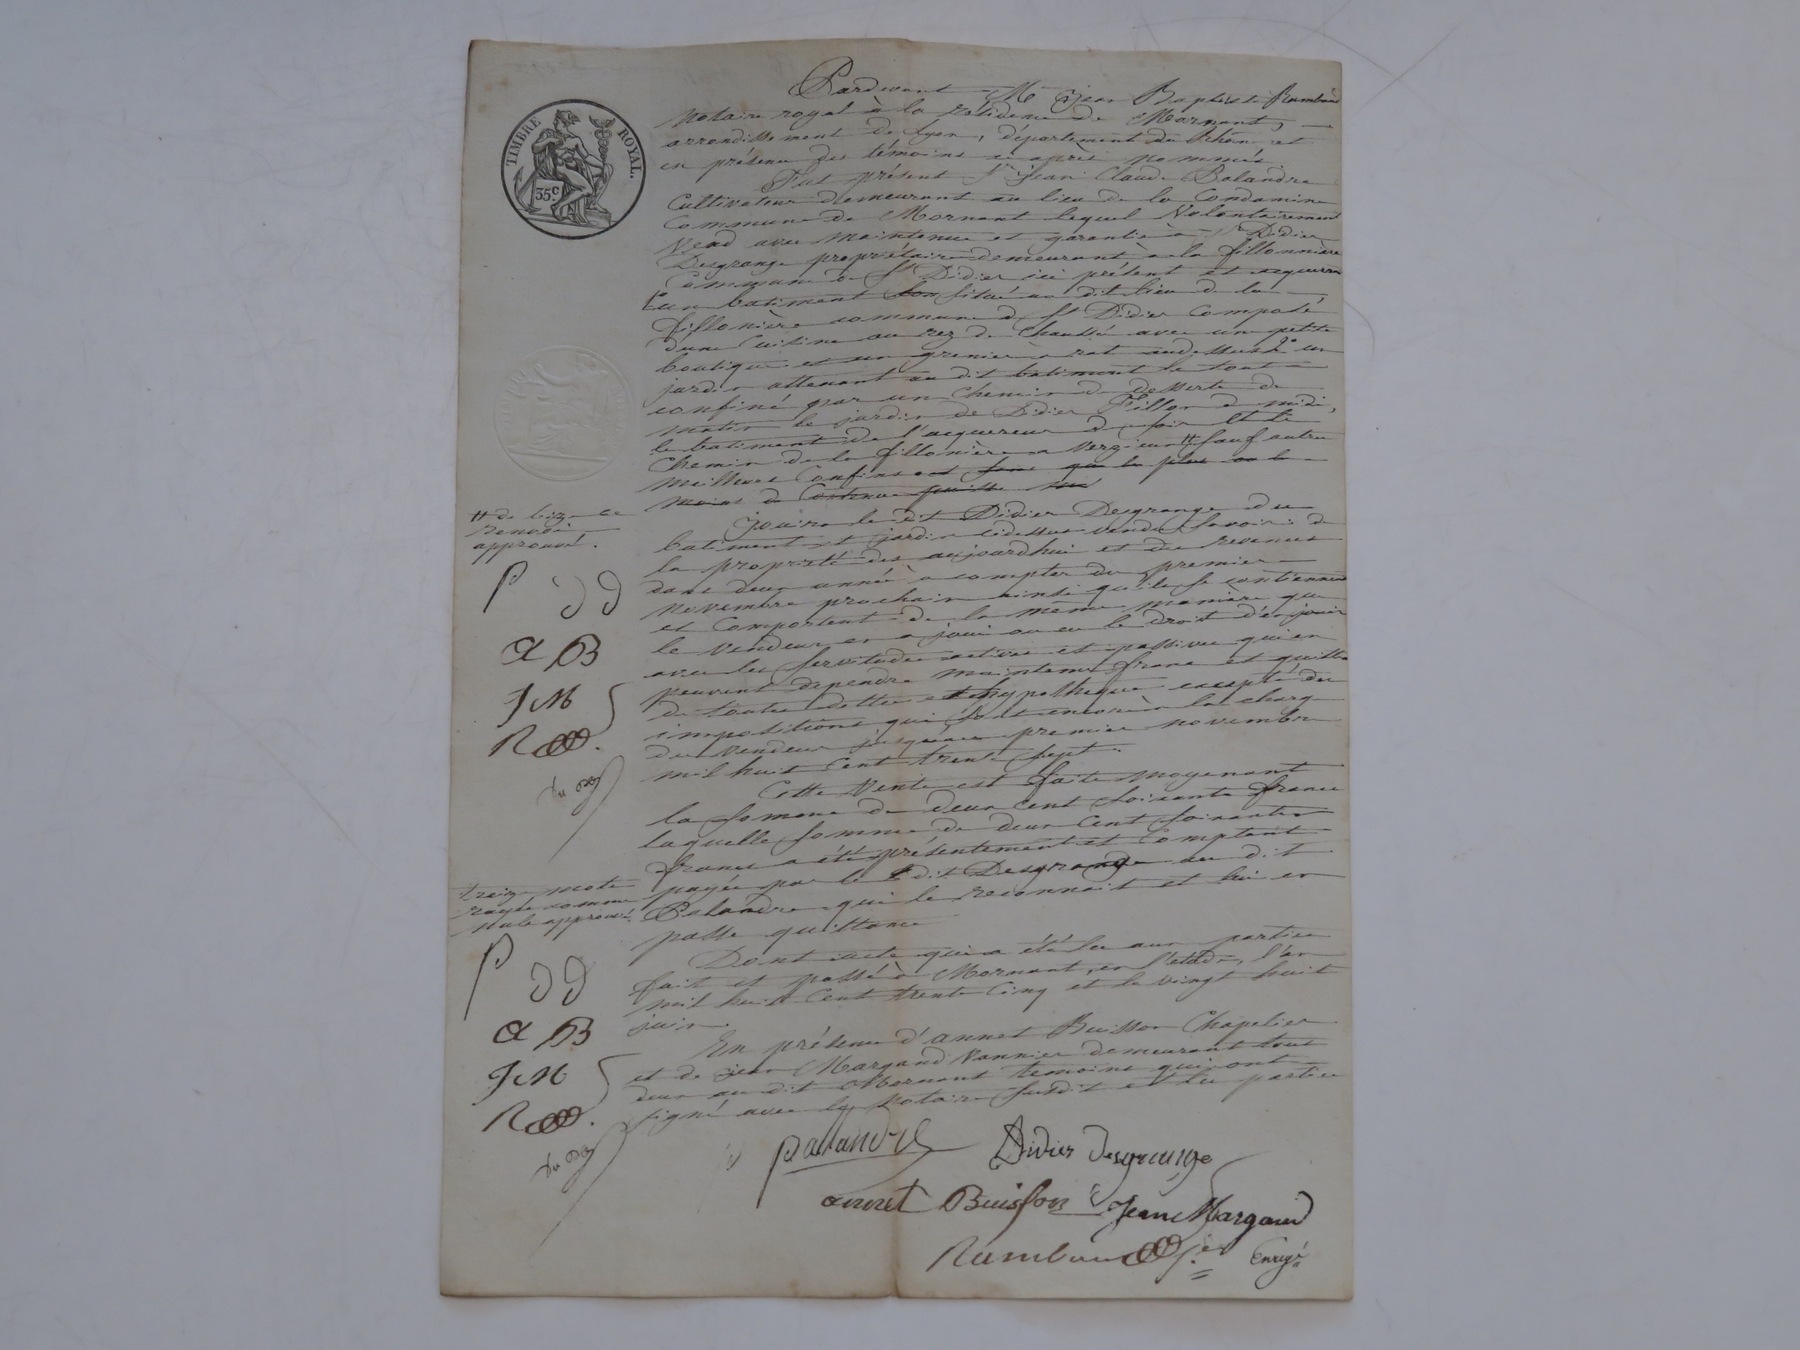 TIMBRE ROYAL.
35c.
Pardevant Me Jean Baptiste Rambaud
Notaire royal à la résidence de Mornant,
arrondissement de Lyon, département du Rhône et
en présence des témoins ci après nommés
Fut présent Sr Jean Claude Palandre
Cultivateur demeurant au lieu de la Condamine
Commune de Mornant lequel volontairement
Vend avec maintenue et garantie à Sr Didier
Desgrange propriétaire demeurant à la fillonnière
Commune de St Didier ici présent et acquereur
1o un batiment situé au dit lieu de la
fillonière commune de St Didier Composé
d'une Cuisine au rez de Chaussé avec une petite
boutique et un grenier à rat audessus 2o un
jardin attenant au dit batiment le tout
confiné par un chemin de desserte de
matin le jardin de Didier Fillon de midi,
le batiment de l'acquereur de soir et le
Chemin de la fillonière a Vergieu # sauf autre
meilleurs Confins et soit que le plus ou le
moins de Contenue puisse
# de bize ce
Renvoi
approuvé.
P DD
a B
J M
R
Jouira le dit Didier Desgrange du
batiment et jardin cidessus vendu Savoir: de
la propriété des aujourdhui et des revenus
dans deux année à compter du premier
novembre prochain ainsi qu'ils se contiennent
et Comportent de la même manière que
le vendeur en a joui ou eu le droit d'en jouir
avec les servitudes actives et passives qui en
peuvent dependre maintenu franc et quitte
de toutes dettes et hypotheque excepté des
impositions qui sont encore à la charge
du Vendeur jusqu'au premier novembre
mil huit Cent trente sept.
Cette Vente est faite moyenant
la somme de deux cent soixante francs
laquelle somme de deux Cent soixante
francs a été présentement et Comptant
payée par le dit Desgrange au dit
Palandre qui le reconnait et lui en
passe quittance
treize mots
rayés comme
nuls approuvé.
P DD
a B
J M
R
Dont acte qui a été lu aux parties
fait et passé à Mornant, en l'etude, l'an
mil huit Cent trente Cinq et le vingt huit
juin.
En présence d'annet Buisson Chapelier
et de jean Margand Vannier demeurant tout
deux au dit Mornant temoins qui ont
signé avec le Notaire susdit et les parties
palandre Didier desgrange
annet Buisson Jean Margand
Rambaud
Enregé